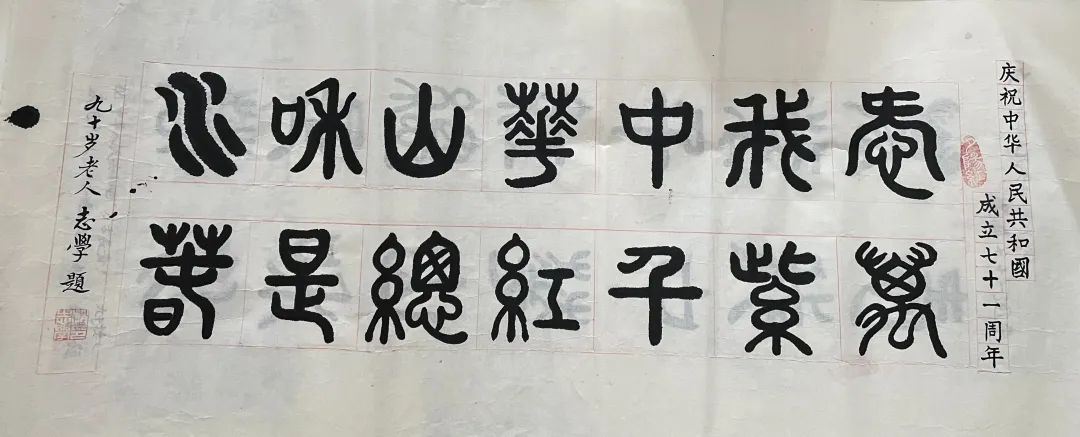 庆祝中华人民共和國
成立七十一周年
愛我中華山和水
萬紫千紅總是春
九十岁老人 志學 題